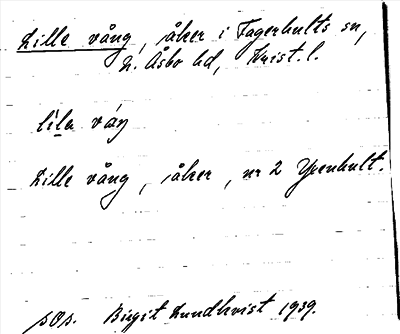 Lille vång, åker i Fagerhults sn,
N. Åsbo hd, Krist. l.
lila váŋ
Lille vång, åker, nr 2 Yxenhult.
pOp. Birgit Lundkvist 1939.